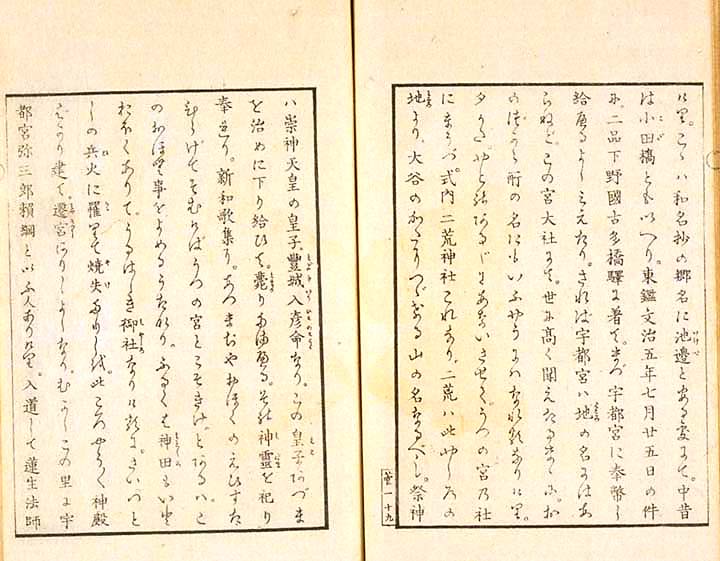 けり。こゝハ和名抄の郷名に池邊とある處にて。中昔
は小田橋ともいへり。東鑑文治五年七月廿五日の件
に、二品下野國古多橋驛に着て。まづ宇都宮に奉幣し
給へるよしみえたり。されば宇都宮ハ地の名にはあ
らねど。この宮大社にて。世に高く聞えたるまゝに。お
のづから所の名にもいふやうにハなれるなりけり。
夕かた。やどれるあるじをあないさせて。うつの宮乃社
にまうづ。式内二荒神社これなり。二荒ハ此やしろの
地より、大谷のかたつゞける山の名なるべし。祭神
十九
ハ崇神天皇の皇子。豐城入彦命なり。この皇子あづま
を治めに下り給ひて。薨りたまへる。その神靈を祀り
奉れり。新和歌集に。あつまぢやおほくのえびすた
ひらげてそむけばうつの宮とこそきけ。とあるハこ
のおほむ事をよめるうたなり。ふるくは神田もいと
おほくありて。うるはしき御社なりけるを。さいつと
しの兵火に罹りて焼失たりしを。此ころやうやく神殿
ばかり建て。遷宮ありしよしなり。むかしこの里に宇
都宮弥三郎頼綱といふ人ありけり。入道して蓮生法師